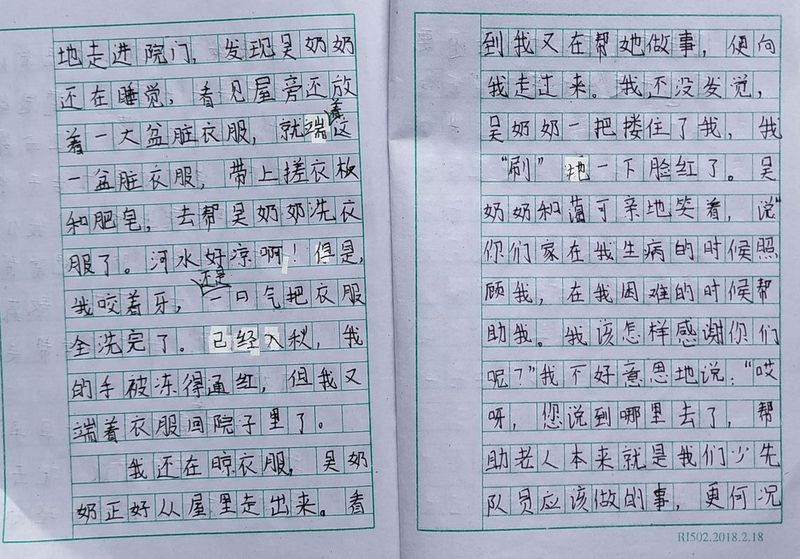 地走进院门，发现吴奶奶
还在睡觉，看见屋旁还放
着一大盆脏衣服，就端着这
一盆脏衣服，带上搓衣板
和肥皂，去帮吴奶奶洗衣
服了。河水好凉啊！但是，
我咬着牙，还是一口气把衣服
全洗完了。已经入秋，我
的手被冻得通红，但我又
端着衣服回院子里了。
我还在晾衣服，吴奶
奶正好从屋里走出来。看
到我又在帮她做事，便向
我走过来。我不没发觉，
吴奶奶一把搂住了我，我
“刷”地一下脸红了。吴
奶奶和蔼可亲地笑着，说“
你们家在我生病的时候照
顾我，在我困难的时候帮
助我。我该怎样感谢你们
呢？”我不好意思地说：“哎
呀，您说到哪里去了，帮
助老人本来就是我们少先
队员应该做的事，更何况
RJ502.2018.2.18